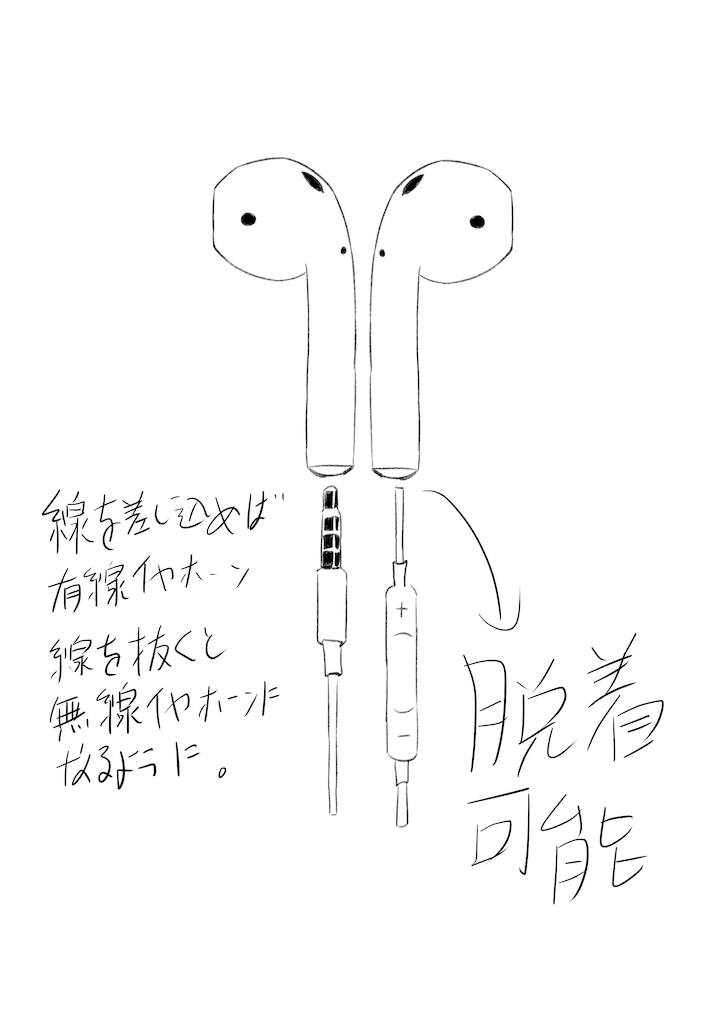 線を差し込めば
有線イヤホーン
線を抜くと
無線イヤホーンに
なるように。
+
−
脱着
可能